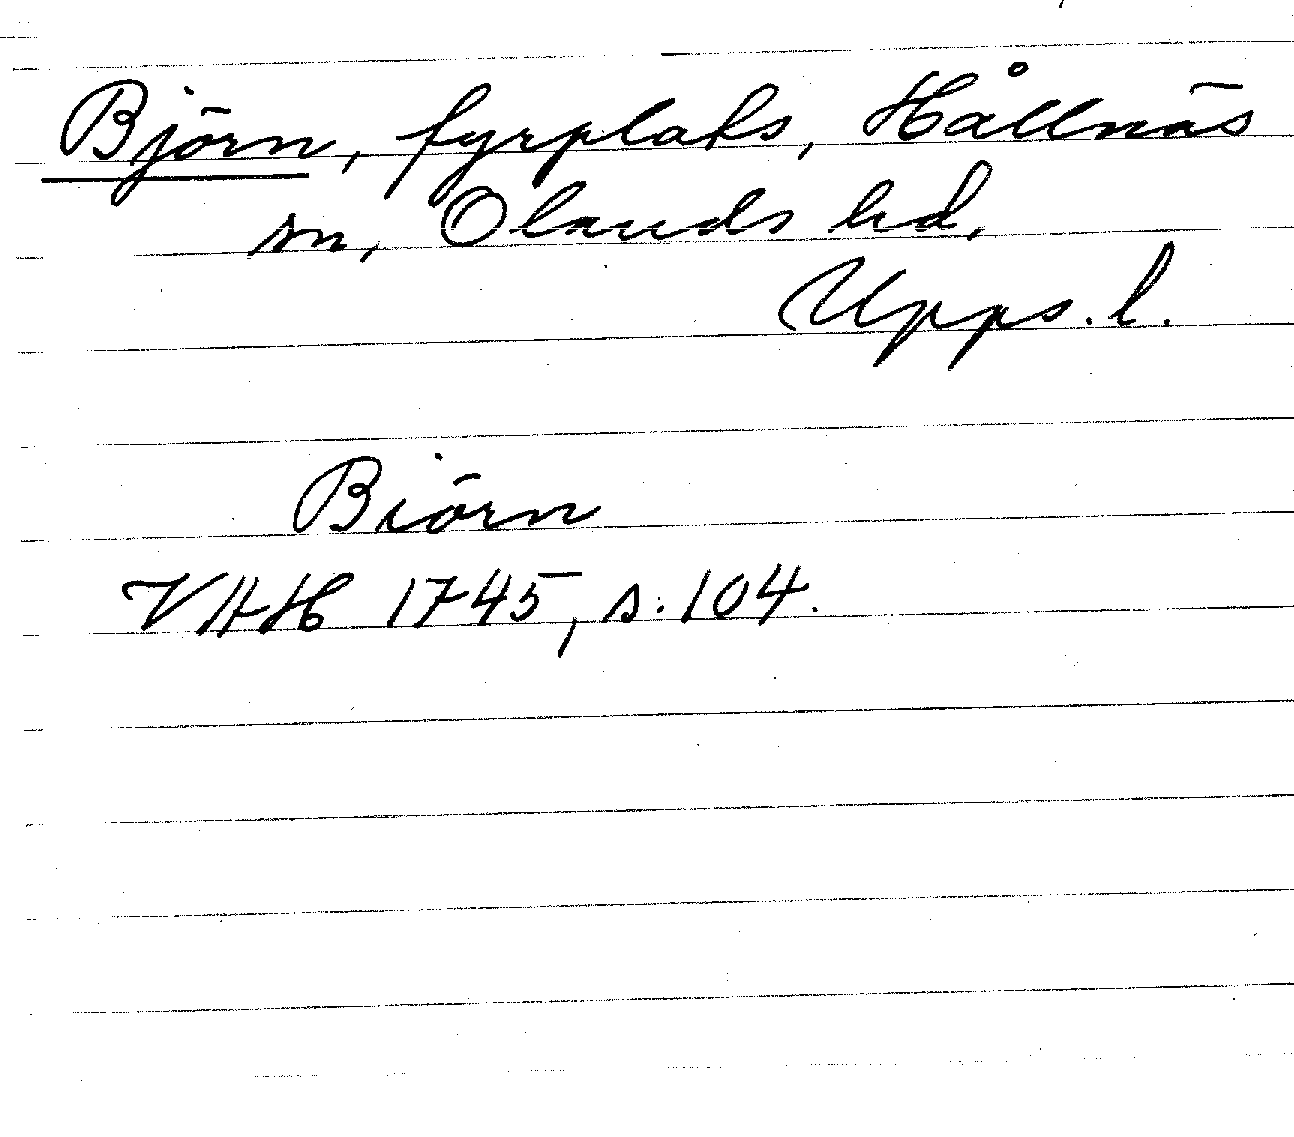 Björn, fyrplats, Hållnäs
sn, Olands hd.
Upps. l.
Biörn
VHH 1745, s. 104.